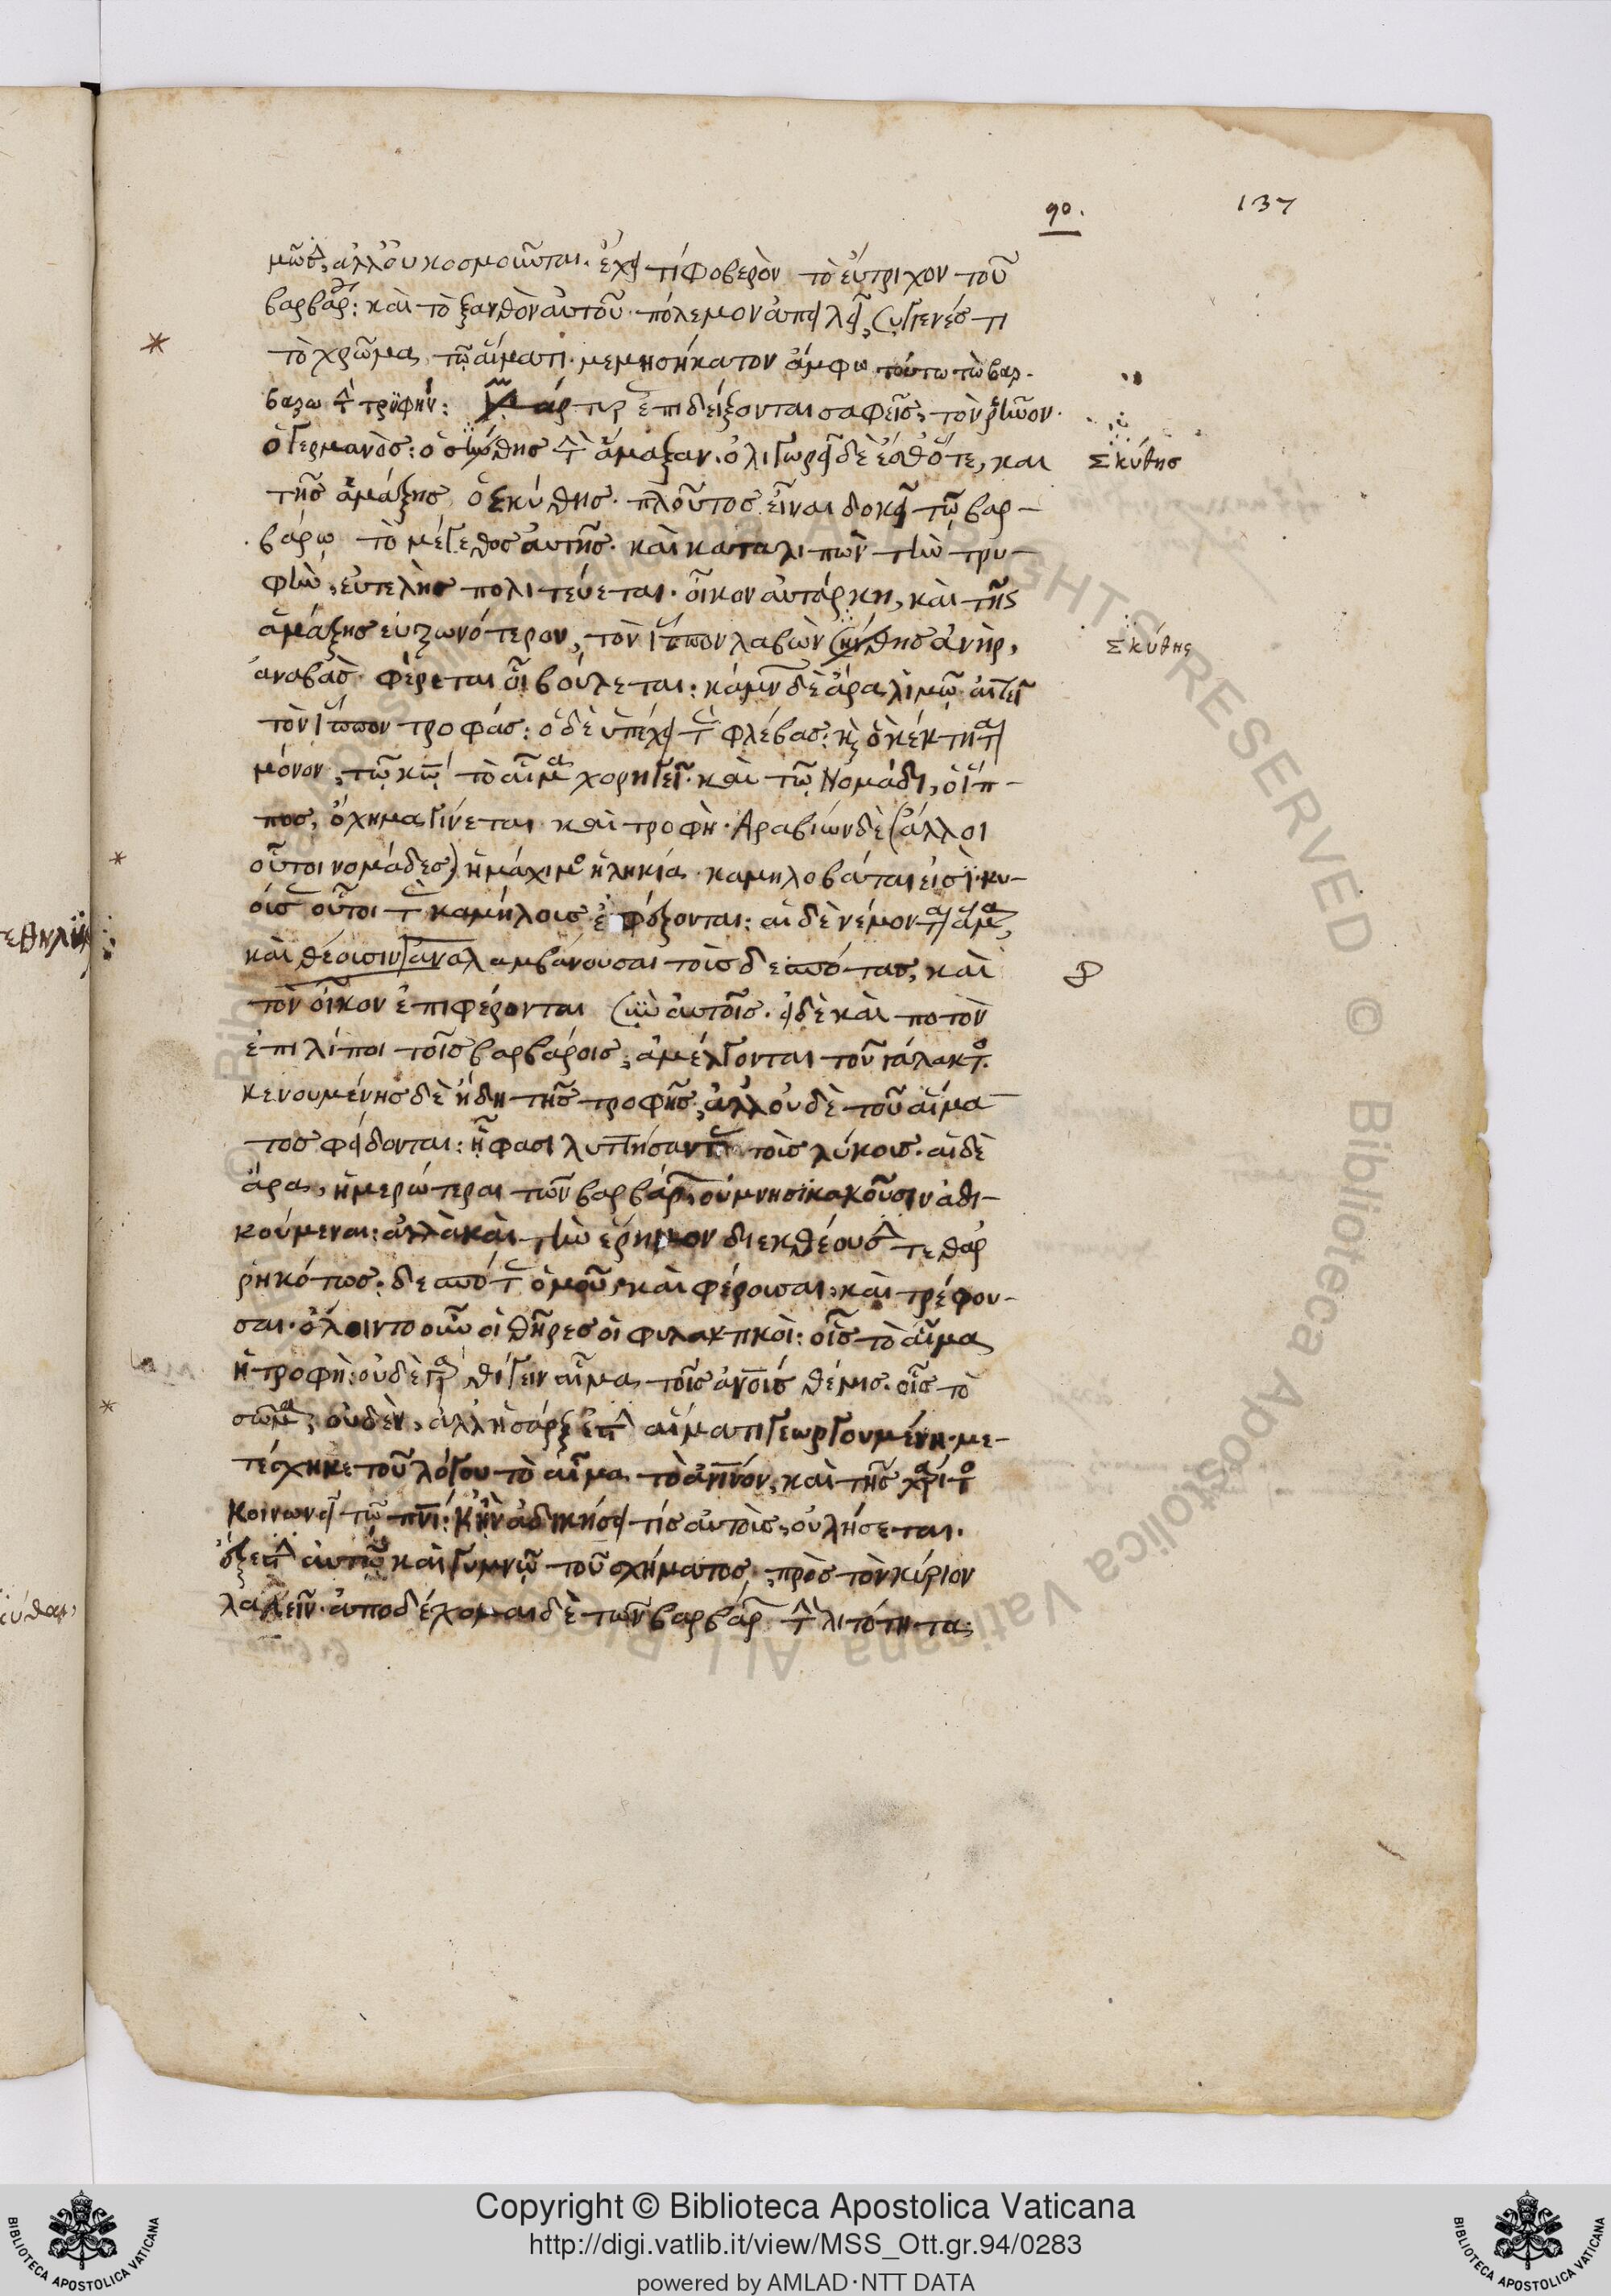 90.
137
μῶσ, ἀλλ' οὐ κοσμοῦνται. ἔχει τί φοβερὸν τὸ εὔτριχον τοῦ
βαρβάρ: καὶ τὸ ξανθὸν αὐτοῦ πόλεμον ἀπειλεῖ, συγγενές τι
τὸ χρῶμα τῷ αἵματι. μεμησήκατον ἄμφω τούτω τὼ βαρ-
βάρω τὴν τρυφήν: ἐπιδείξονται σαφεῖσ, τὸν ῥῆνον
ὁ Γερμανὸσ: ὁ σκύθησ τὴν ἅμαξαν. ὀλιγωρεῖ δὲ ἔσθ' ὅτε, και
Σκύθησ
τῆσ ἁμάξησ ὁ Σκύθησ. πλοῦτοσ εἶναι δοκεῖ τῷ βαρ-
βάρω τὸ μέγεθοσ αὐτῆσ. καὶ καταλιπὼν τὴν τρυ-
φὴν, εὐτελὴσ πολιτεύεται. οἶκον αὐτάρκη, καὶ τῆς
ἁμάξησ εὐζωνότερον, τὸν ἵππον λαβὼν σκύθησ ἀνὴρ,
Σκύθης
ἀναβὰσ φέρεται οἷ βούλεται: κάμνων δὲ ἄρα λιμῷ αἰτεῖ
τὸν ἵππον τροφάσ: ὁ δὲ ὑπέχει τὰσ φλέβασ: κ ὃ κέκτηται
μόνον, τῷ κῷ τὸ αἷμα χορηγεῖ. καὶ τῷ Νομάδι, ὁ ἵπ-
ποσ, ὄχημα γίνεται καὶ τροφὴ. Ἀραβίων δὲ (ἄλλοι
οὗτοι νομάδεσ) ἡ μάχιμοσ ἡληκία καμηλοβάται εἰσὶ. κυ-
οίσαισ οὗτοι ταῖσ καμήλοισ ἐπόξονται: αἱ δὲ νέμονται ἅμα,
καὶ θέοισιν ἀναλαμβάνουσαι τοὶσ δεσπότασ, καὶ
τὸν οἶκον ἐπιφέρονται σὺν αὐτοῖσ. εἰ δὲ καὶ ποτὸν
ἐπιλίποι τοῖσ βαρβάροισ, ἀμέλγονται τοῦ γάλακτοσ.
κενουμένησ δὲ ἤδη τῆσ τροφῆσ, ἀλλ' οὐδὲ τοῦ αἵμα
τοσ φείδονται: ᾗ φασι λυττήσαντεσ τοῖσ λύκοισ. αἱ δὲ
ἄρα, ἡμερώτεραι τῶν βαρβάρων, οὐ μνησικακοῦσιν ἀδι-
κούμεναι: ἀλλὰ καὶ τὴν ἔρημον διεκθέουσι τεθαρ
ρηκότωσ. δεσπότασ ὁμοῦ καὶ φέρουσαι, καὶ τρέφου-
σαι. ὄλοιντο οὖν οἱ θῆρεσ οἱ φυλακτικοὶ: οἷσ τὸ αἷμα
ἡ τροφὴ: οὐδὲ γὰρ θίγειν αἷμα τοῖσ ἀνοισ θέμισ. οἷσ τὸ
σῶμα, οὐδὲν, ἀλλ' ἢ σάρξ ἐστιν αἵματι γεωργουμένη. με-
τέσχηκε τοῦ λόγου τὸ αἷμα τὸ ἀνινον, καὶ τῆσ χάριτοσ
κοινωνεῖ τῷ πνι: κἢν ἀδικήσει τίσ αὐτὸισ, οὐ λήσεται.
ἔξεστιν αὐτῷ καὶ γυμνῷ τοῦ σχήματοσ, πρὸσ τὸν κύριον
λαλεῖν. ἀποδέχομαι δὲ τῶν βαρβάρ τὴν λιτότητα,
Copyright © Biblioteca Apostolica Vaticana
http://digi.vatlib.it/view/MSS_Ott.gr.94/0283
powered by AMLAD·NTT DATA